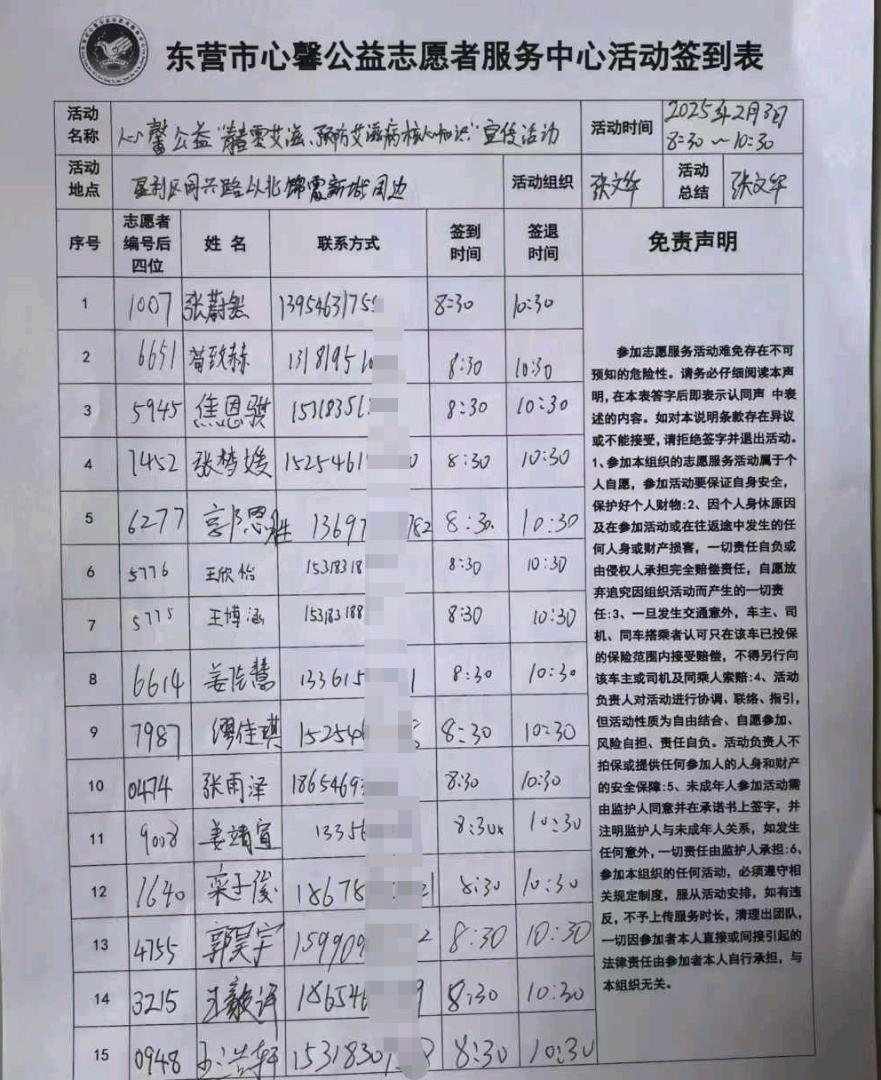 东营市心馨公益志愿者服务中心活动签到表
活动名称 心馨公益" 预防艾滋病核心知识"宣传活动 活动时间 2025年2月3日 8:30~10:30
活动地点 垦利区同兴路以北锦霞新城周边 活动组织 张文华 活动总结 张文华
序号 志愿者编号后四位 姓名 联系方式 签到时间 签退时间 免责声明
1 1007 张蔚然 1395463175 8:30 10:30
2 6651 苟致赫 13181951 8:30 10:30
3 5945 焦恩骐 15318351 8:30 10:30
4 7452 张梦媛 1525461 0 8:30 10:30
5 6277 郭恩胜 13697 782 8:30 10:30
6 5776 王欣怡 15318318 8:30 10:30
7 5775 王博涵 153183188 8:30 10:30
8 6614 姜 慧 133615 1 8:30 10:30
9 7987 缪佳琪 152546 8:30 10:30
10 0474 张雨泽 1865469 8:30 10:30
11 9008 姜靖宣 13356 8:30 10:30
12 1640 栾子俊 18678 21 8:30 10:30
13 4755 郭昊宇 159909 2 8:30 10:30
14 3215 王毅译 186546 9 8:30 10:30
15 0948 王浩轩 1531830 8 8:30 10:30
参加志愿服务活动难免存在不可
预知的危险性。请务必仔细阅读本声
明,在本表签字后即表示认同声 中表
述的内容。如对本说明条款存在异议
或不能接受,请拒绝签字并退出活动。
1、参加本组织的志愿服务活动属于个
人自愿,参加活动要保证自身安全,
保护好个人财物:2、因个人身休原因
及在参加活动或在往返途中发生的任
何人身或财产损害,一切责任自负或
由侵权人承担完全赔偿责任,自愿放
弃追究因组织活动而产生的一切责
任:3、一旦发生交通意外,车主、司
机、同车搭乘者认可只在该车已投保
的保险范围内接受赔偿,不得另行向
该车主或司机及同乘人索赔:4、活动
负责人对活动进行协调、联络、指引,
但活动性质为自由结合、自愿参加、
风险自担、责任自负。活动负责人不
拍保或提供任何参加人的人身和财产
的安全保障:5、未成年人参加活动需
由监护人同意并在承诺书上签字,并
注明监护人与未成年人关系,如发生
任何意外,一切责任由监护人承担:6、
参加本组织的任何活动,必须遵守相
关规定制度,服从活动安排,如有违
反,不予上传服务时长,清理出团队,
一切因参加者本人直接或间接引起的
法律责任由参加者本人自行承担,与
本组织无关。